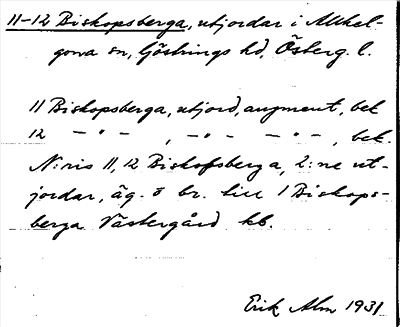 11-12 Biskopsberga, utjordar i Allhel-
gona sn, Göstrings hd, Österg. l.
11 Biskopsberga, utjord, augment, bet
12 — " — , — " — — " — , bet.
N:ris 11, 12 Biskopsberga, 2:ne ut-
jordar, äg. o br. till 1 Biskops-
berga Västergård kb.
Erik Alm 1931